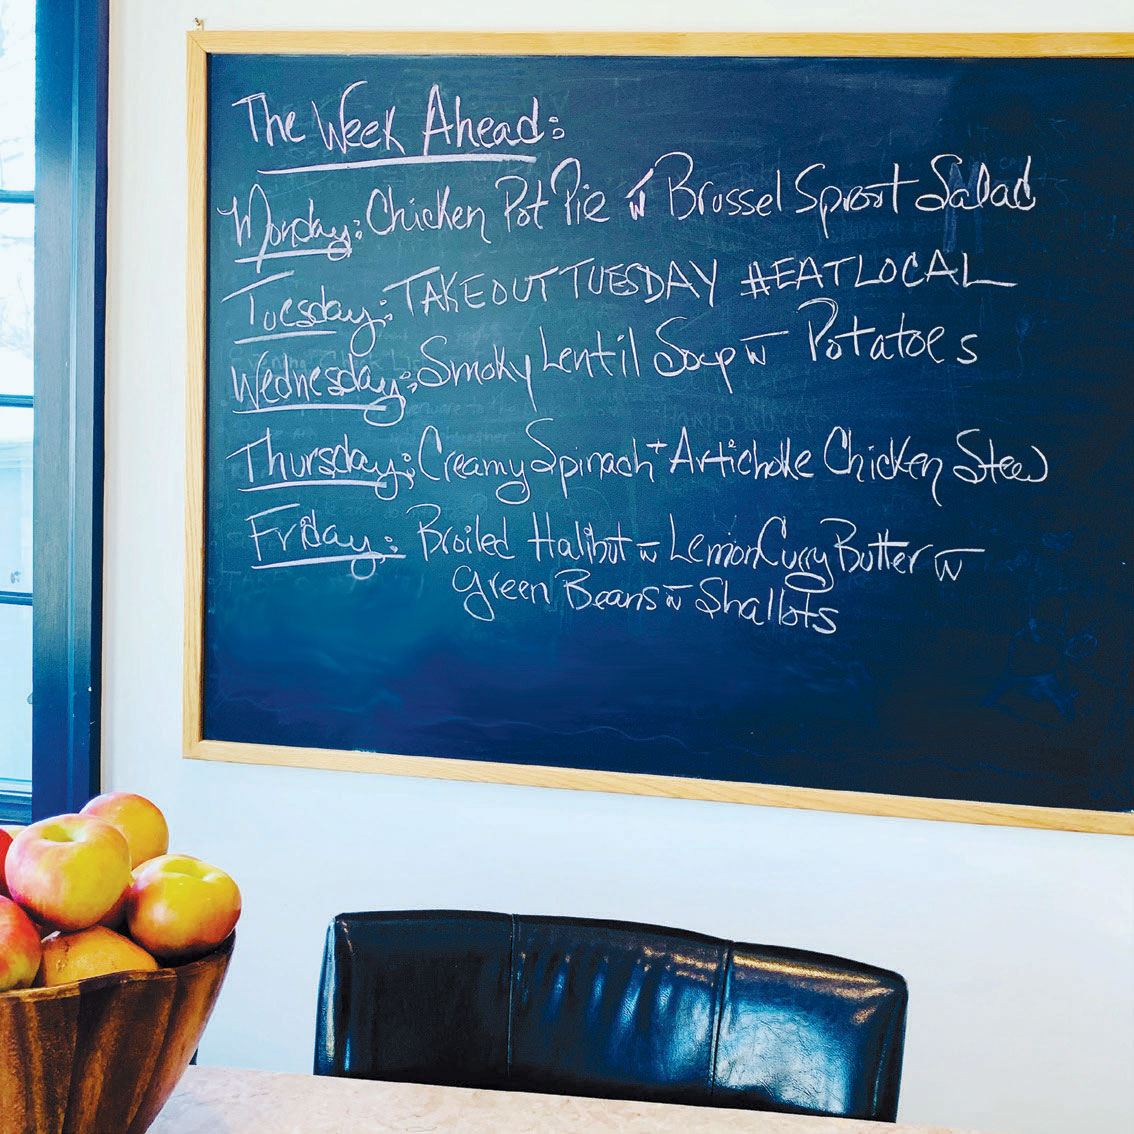 The Week Ahead:
Monday: Chicken Pot Pie w Brussel Sprout Salad
Tuesday: TAKEOUT TUESDAY #EATLOCAL
Wednesday: Smoky Lentil Soup w Potatoes
Thursday: Creamy Spinach + Artichoke Chicken Stew
Friday: Broiled Halibut w Lemon Curry Butter w
Green Beans w Shallots